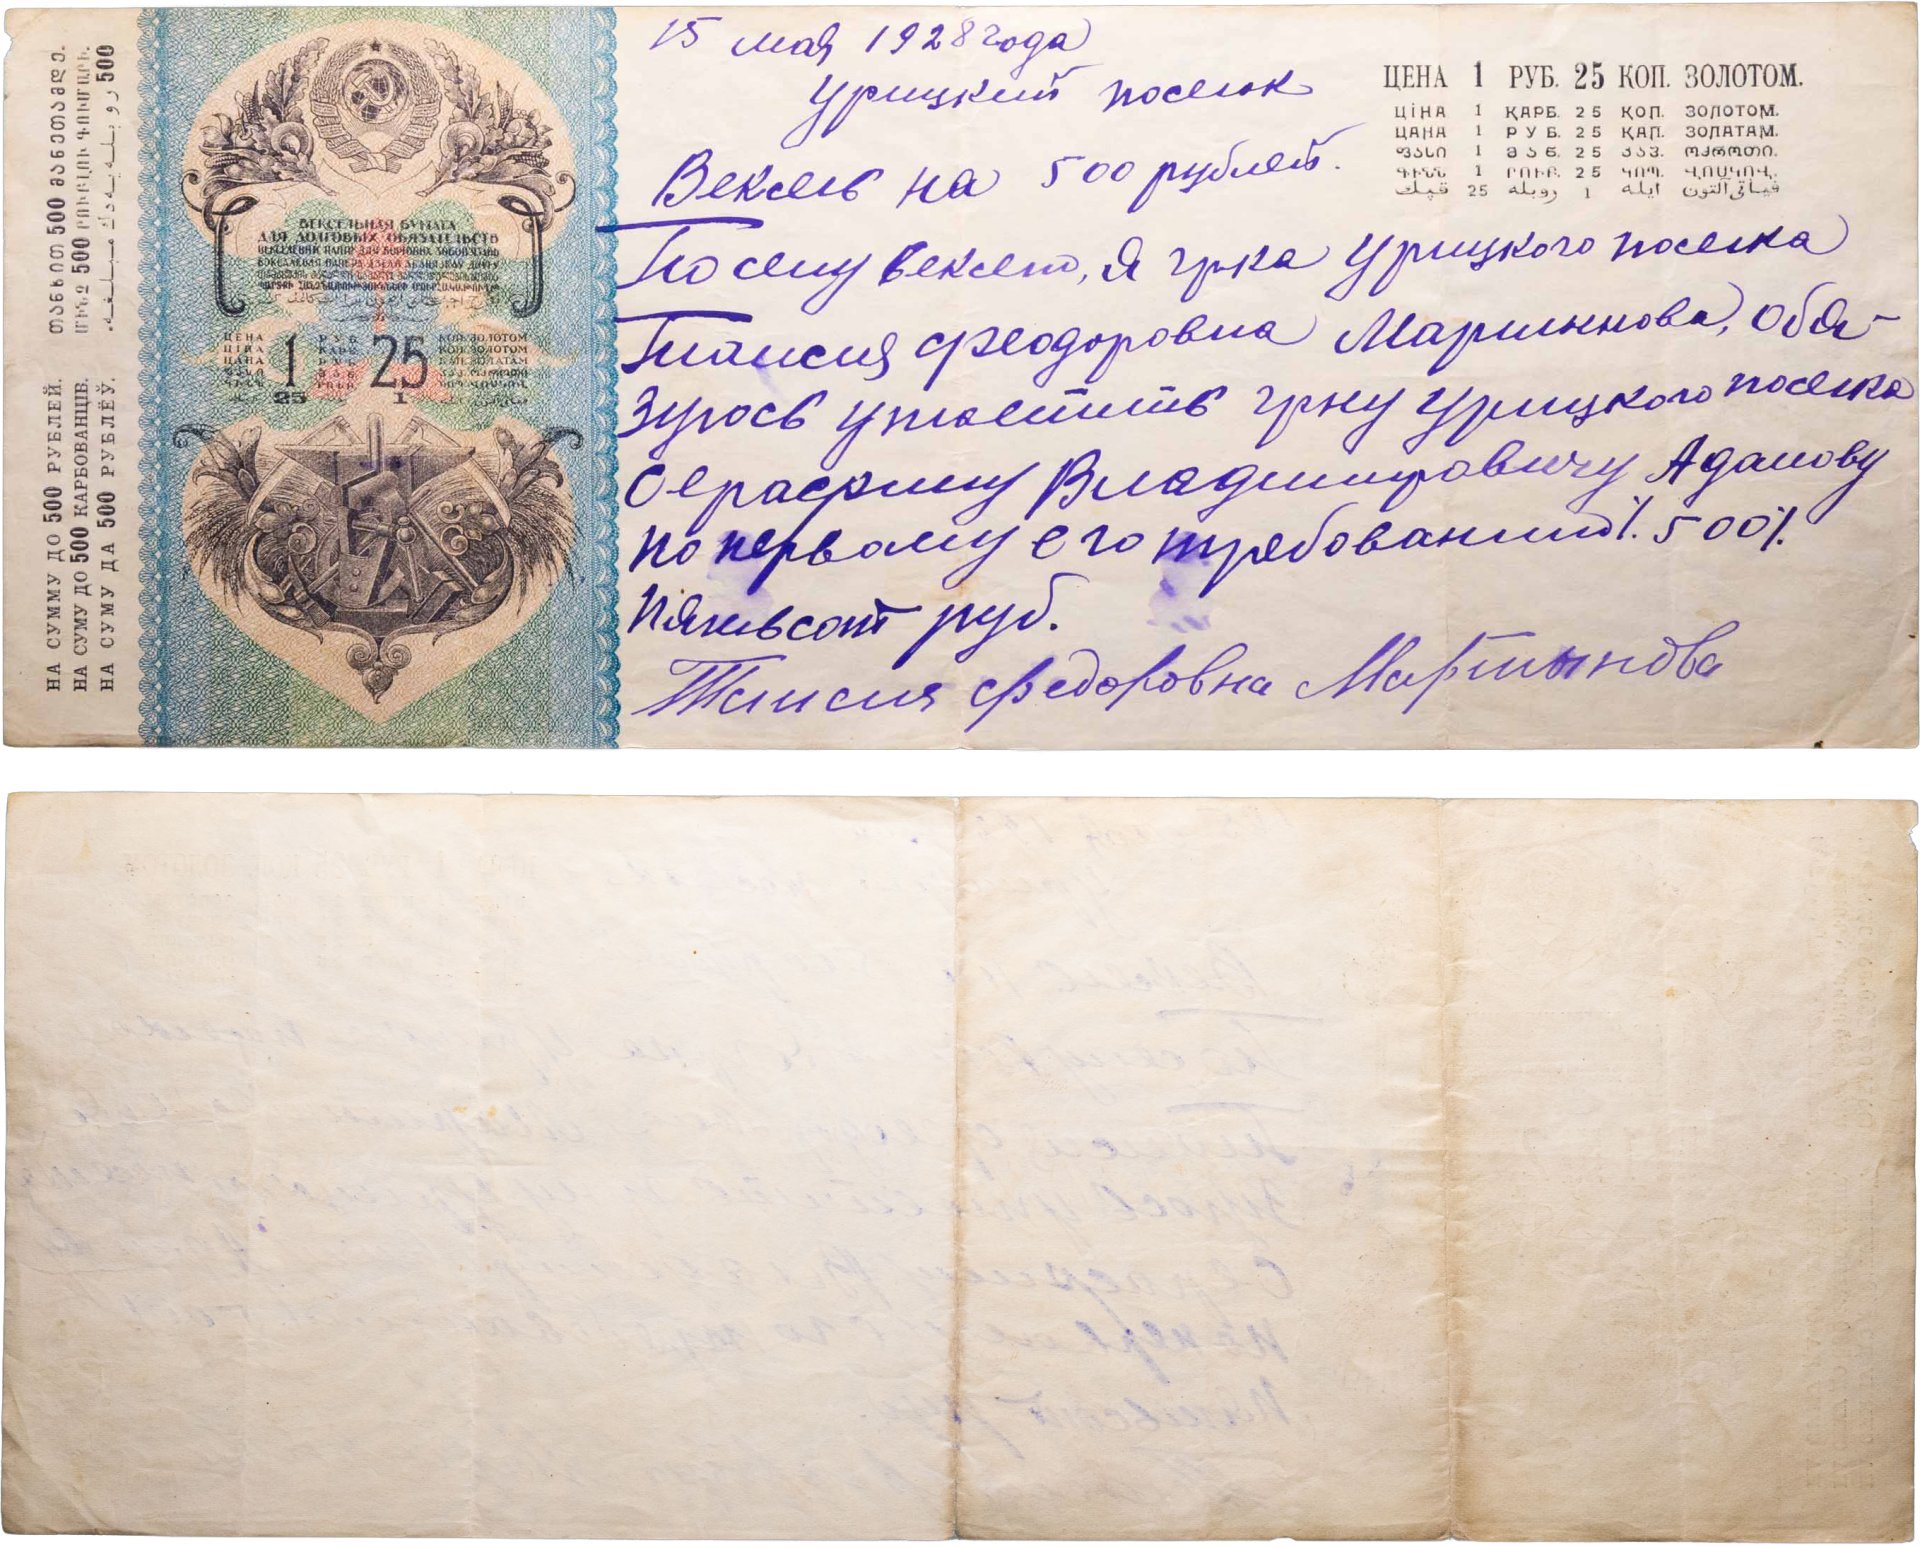 НА СУММУ ДО 500 РУБЛЕЙ.
НА СУМУ ДО 500 КАРБОВАНЦІВ.
НА СУМУ ДА 500 РУБЛЁЎ.
ВЕКСЕЛЬНАЯ БУМАГА
ДЛЯ ДОЛГОВЫХ ОБЯЗАТЕЛЬСТВ
ЦЕНА 1 РУБ. 25 КОП. ЗОЛОТОМ
ЦІНА КАРБ. КОП. ЗОЛОТОМ
ЦАНА РУБ. КАП. ЗОЛАТАМ
25 1
15 мая 1928 года
Урицкий поселок
ЦЕНА 1 РУБ. 25 КОП. ЗОЛОТОМ.
ЦІНА 1 КАРБ. 25 КОП. ЗОЛОТОМ.
ЦАНА 1 РУБ. 25 КАП. ЗОЛАТАМ.
ՓԱՍԻ 1 25
ԳԻՆԸ 1 ՌՈՒԲ. 25 ԿՈՊ. ՎՈՍԿՈՎ.
قیماتی التون ایله 1 روبله 25 قپك
Вексель на 500 рублей.
По сему векселю, я гр-ка Урицкого поселка
Таисия Феодоровна Мартынова, обя-
зуюсь уплатить гр-ну Урицкого поселка
Серафиму Владимировичу Адамову
по первому его требованию /. 500 /.
Пятьсот руб.
Таисия Федоровна Мартынова